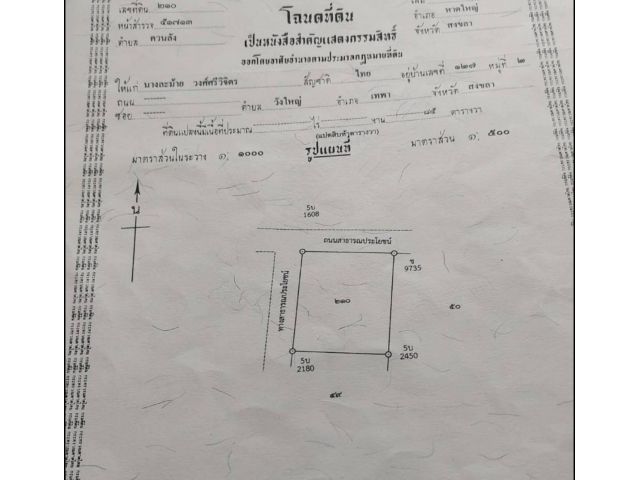 เลขที่ดิน ๒๑๐
โฉนดที่ดิน
หน้าสำรวจ ๕๑๗๑๓
อำเภอ หาดใหญ่
ตำบล ควนลัง
จังหวัด สงขลา
เป็นหนังสือสำคัญแสดงกรรมสิทธิ์
ออกโดยอาศัยอำนาจตามประมวลกฎหมายที่ดิน
ให้แก่ นางละม้าย วงศ์ศรีวิจิตร สัญชาติ ไทย อยู่บ้านเลขที่ ๑๒๗ หมู่ที่ ๒
ถนน ------- ตำบล วังใหญ่ อำเภอ เทพา จังหวัด สงขลา
ซอย -------
ที่ดินแปลงนี้มีเนื้อที่ประมาณ ไร่ งาน ๘๕ ตารางวา
(แปดสิบห้าตารางวา)
มาตราส่วนในระวาง ๑: ๑๐๐๐ รูปแผนที่ มาตราส่วน ๑: ๕๐๐
น
5บ
1608
ถนนสาธารณประโยชน์
ทางสาธารณประโยชน์
ช
9735
๒๑๐
๕๐
5บ
2180
5บ
2450
๔๙